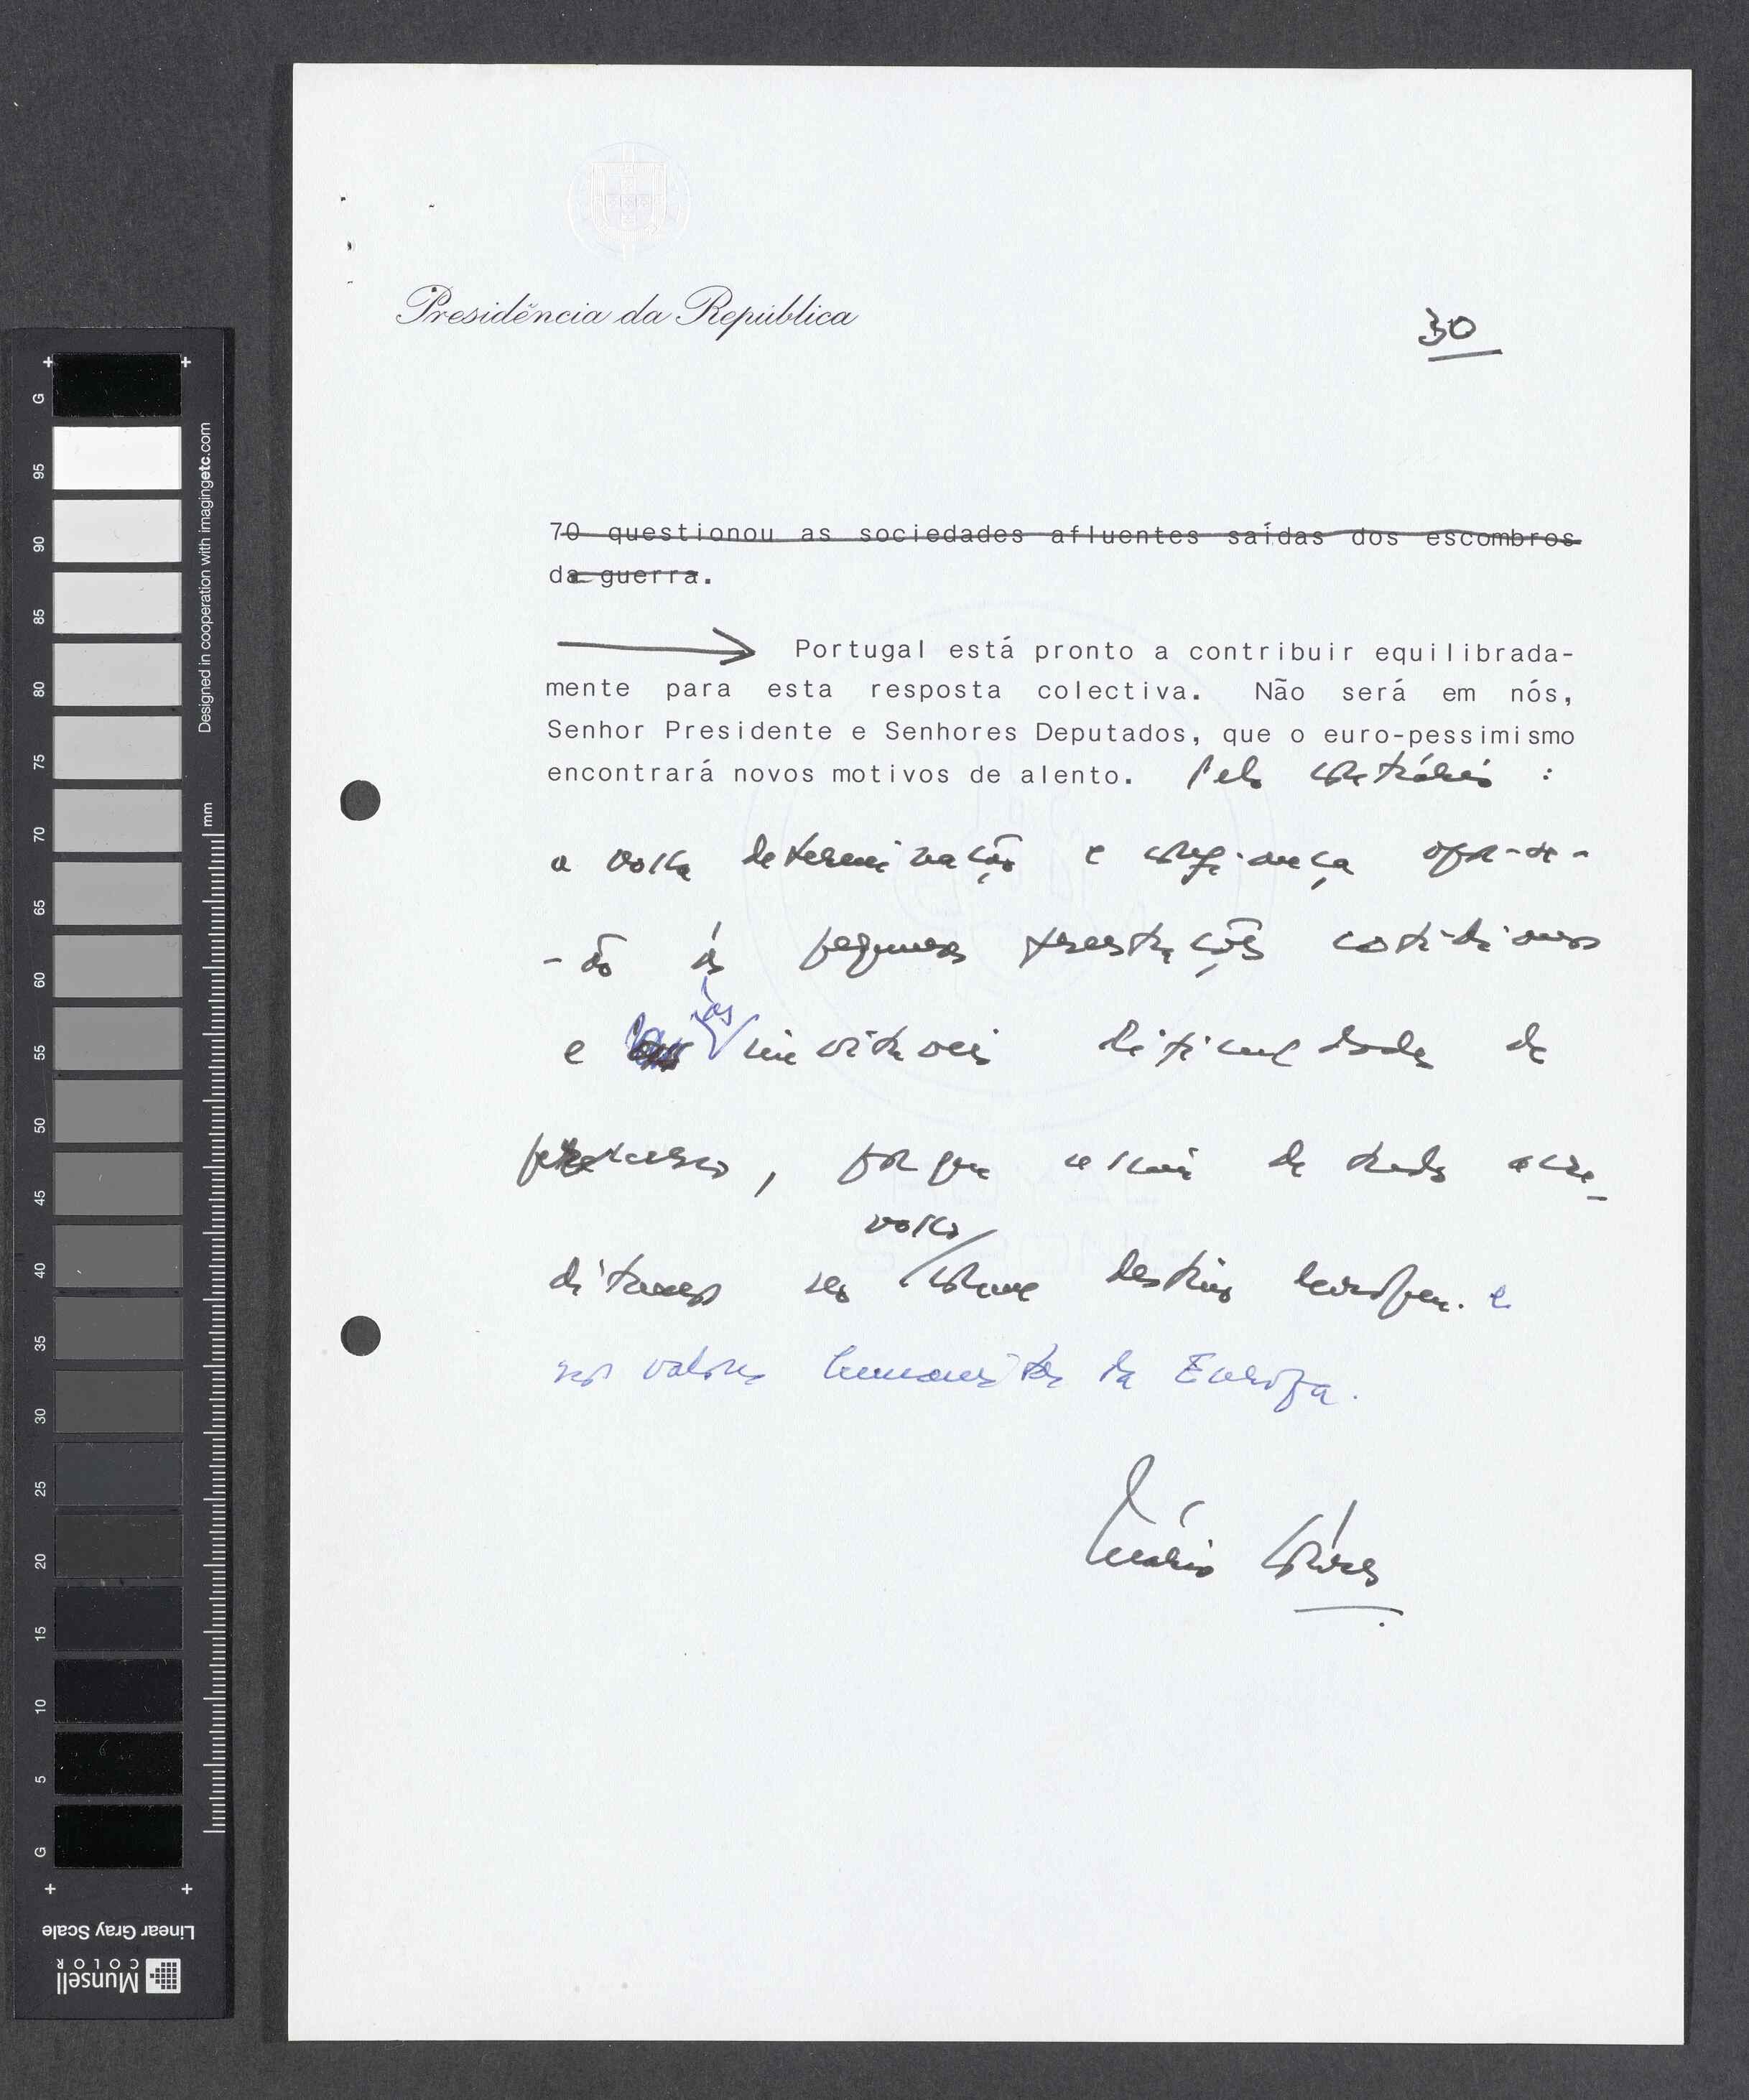 Presidência da República
30
70 questionou as sociedades afluentes saídas dos escombros
da guerra.
Portugal está pronto a contribuir equilibrada-
mente para esta resposta colectiva. Não será em nós,
Senhor Presidente e Senhores Deputados, que o euro-pessimismo
encontrará novos motivos de alento. Pelo contrário :
a nossa determinação e confiança opor-se-
-ão às pequenas frustrações cotidianas
e às inevitáveis dificuldades de
percurso, porque acima de tudo acre-
nosso
ditamos no comum destino europeu. e
nos valores humanistas da Europa.
Mário Soares
G
95
90
85
80
75
70
65
60
55
50
45
40
35
30
25
20
15
10
5
G
Designed in cooperation with imagingetc.com
mm
Linear Gray Scale
Munsell
COLOR